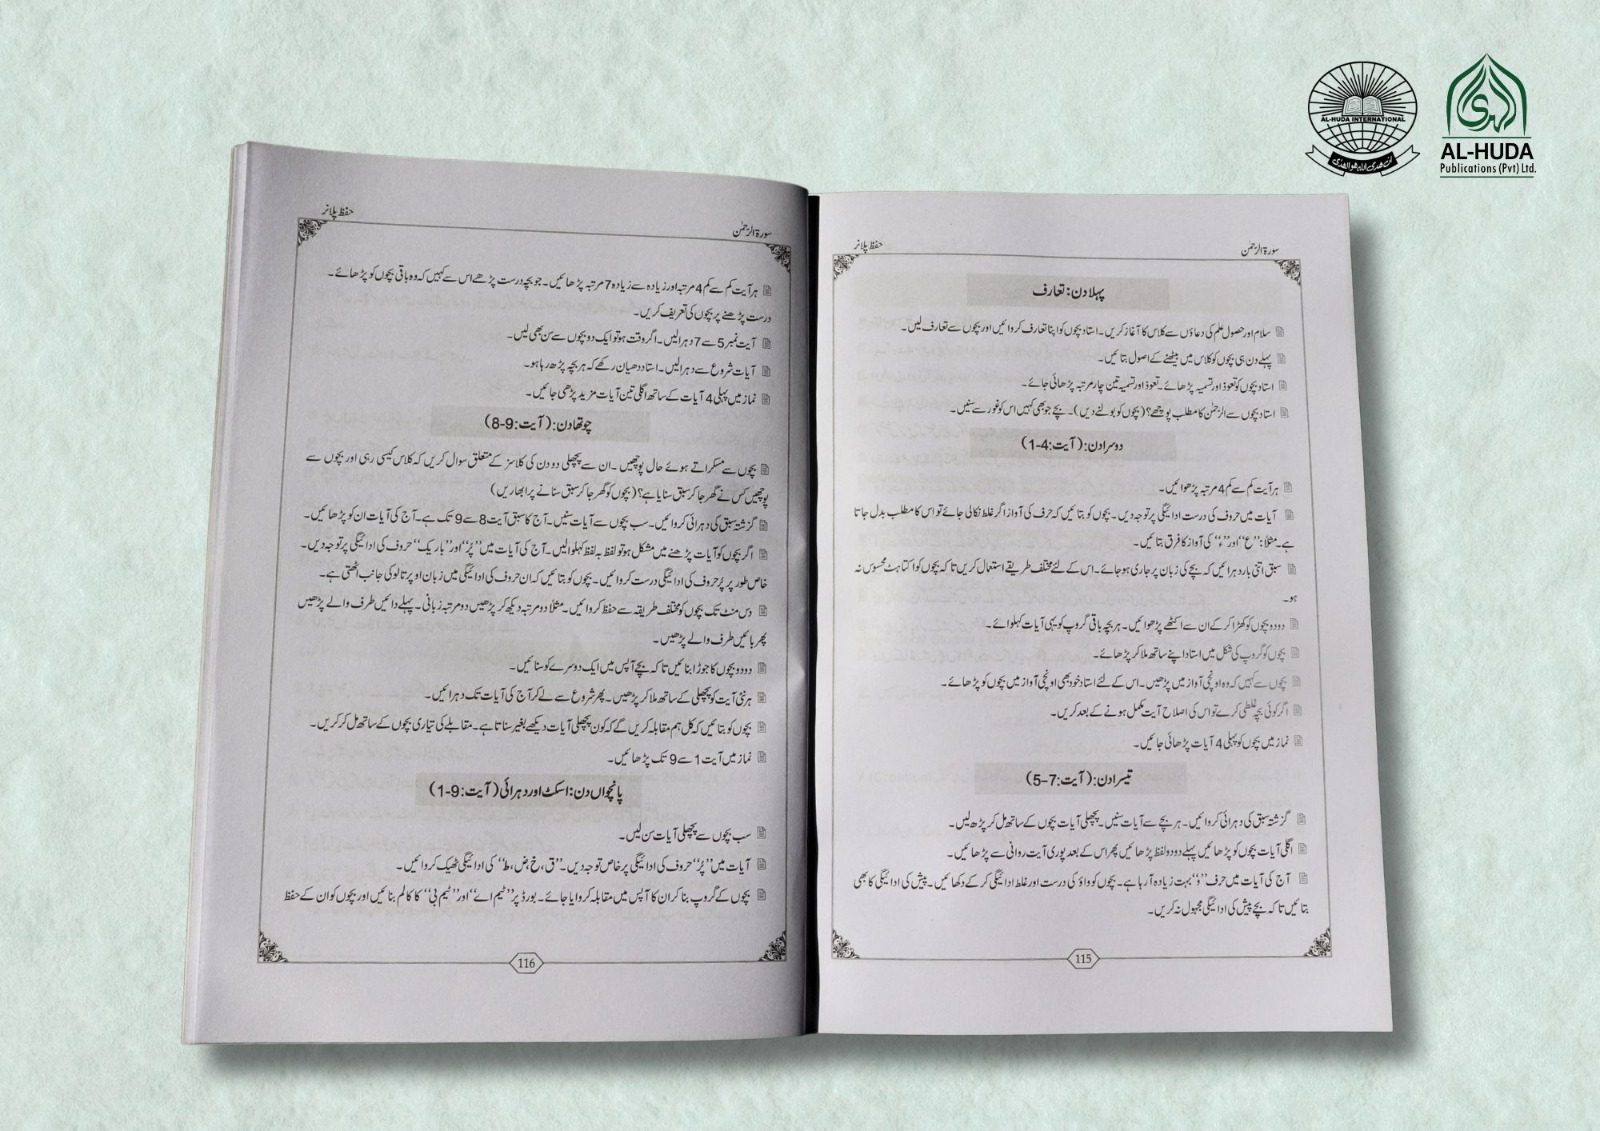 AL-HUDA INTERNATIONAL
ان ھدی اللہ ھوالھدی
الہدی
AL-HUDA
Publications (Pvt) Ltd.
سورۃ الرّحمٰن
حفظ پلانر
پہلا دن: تعارف
سلام اور حصول علم کی دعاؤں سے کلاس کا آغاز کریں۔ استاد بچوں کو اپنا تعارف کروائیں اور بچوں سے تعارف لیں۔
پہلے دن ہی بچوں کو کلاس میں بیٹھنے کے اصول بتائیں۔
استاد بچوں کو تعوذ اور تسمیہ پڑھائے۔ تعوذ اور تسمیہ تین چار مرتبہ پڑھائی جائے۔
استاد بچوں سے الرّحمٰن کا مطلب پوچھے؟ (بچوں کو بولنے دیں)۔ بچے جو بھی کہیں اس کو غور سے سنیں۔
دوسرا دن: (آیت: 4-1)
ہر آیت کم سے کم 4 مرتبہ پڑھوائیں۔
آیات میں حروف کی درست ادائیگی پر توجہ دیں۔ بچوں کو بتائیں کہ حرف کی آواز اگر غلط نکالی جائے تو اس کا مطلب بدل جاتا
ہے۔ مثلاً: ”ع“ اور ”ء“ کی آواز کا فرق بتائیں۔
سبق اتنی بار دہرائیں کہ بچے کی زبان پر جاری ہو جائے۔ اس کے لئے مختلف طریقے استعمال کریں تاکہ بچوں کو اکتاہٹ محسوس نہ
ہو۔
دو دو بچوں کو کھڑا کر کے ان سے اکٹھے پڑھوائیں۔ ہر بچہ باقی گروپ کو یہی آیات کہلوائے۔
بچوں کو گروپ کی شکل میں استاد اپنے ساتھ ملا کر پڑھائے۔
بچوں سے کہیں کہ وہ اونچی آواز میں پڑھیں۔ اس کے لئے استاد خود بھی اونچی آواز میں بچوں کو پڑھائے۔
اگر کوئی بچہ غلطی کرے تو اس کی اصلاح آیت مکمل ہونے کے بعد کریں۔
نماز میں بچوں کو پہلی 4 آیات پڑھائی جائیں۔
تیسرا دن: (آیت: 7-5)
گزشتہ سبق کی دہرائی کروائیں۔ ہر بچے سے آیات سنیں۔ پچھلی آیات بچوں کے ساتھ مل کر پڑھ لیں۔
اگلی آیات بچوں کو پڑھائیں پہلے دو دو لفظ پڑھائیں پھر اس کے بعد پوری آیت روانی سے پڑھائیں۔
آج کی آیات میں حرف ”وُ“ بہت زیادہ آ رہا ہے۔ بچوں کو واؤ کی درست اور غلط ادائیگی کر کے دکھائیں۔ پیش کی ادائیگی کا بھی
بتائیں تاکہ بچے پیش کی ادائیگی مجہول نہ کریں۔
115
سورۃ الرّحمٰن
حفظ پلانر
ہر آیت کم سے کم 4 مرتبہ اور زیادہ سے زیادہ 7 مرتبہ پڑھائیں۔ جو بچہ درست پڑھے اس سے کہیں کہ وہ باقی بچوں کو پڑھائے۔
درست پڑھنے پر بچوں کی تعریف کریں۔
آیت نمبر 5 سے 7 دہرا لیں۔ اگر وقت ہو تو ایک دو بچوں سے سن بھی لیں۔
آیات شروع سے دہرا لیں۔ استاد دھیان رکھے کہ ہر بچہ پڑھ رہا ہو۔
نماز میں پہلی 4 آیات کے ساتھ اگلی تین آیات مزید پڑھی جائیں۔
چوتھا دن: (آیت: 9-8)
بچوں سے مسکراتے ہوئے حال پوچھیں۔ ان سے پچھلی دو دن کی کلاسز کے متعلق سوال کریں کہ کلاس کیسی رہی اور بچوں سے
پوچھیں کس نے گھر جا کر سبق سنایا ہے؟ (بچوں کو گھر جا کر سبق سنانے پر ابھاریں)
گزشتہ سبق کی دہرائی کروائیں۔ سب بچوں سے آیات سنیں۔ آج کا سبق آیت 8 سے 9 تک ہے۔ آج کی آیات ان کو پڑھائیں۔
اگر بچوں کو آیات پڑھنے میں مشکل ہو تو لفظ بہ لفظ کہلوا لیں۔ آج کی آیات میں ”پُر“ اور ”باریک“ حروف کی ادائیگی پر توجہ دیں۔
خاص طور پر پُر حروف کی ادائیگی درست کروائیں۔ بچوں کو بتائیں کہ ان حروف کی ادائیگی میں زبان اوپر تالو کی جانب اٹھتی ہے۔
دس منٹ تک بچوں کو مختلف طریقہ سے حفظ کروائیں۔ مثلاً دو مرتبہ دیکھ کر پڑھیں دو مرتبہ زبانی۔ پہلے دائیں طرف والے پڑھیں
پھر بائیں طرف والے پڑھیں۔
دو دو بچوں کا جوڑا بنائیں تاکہ بچے آپس میں ایک دوسرے کو سنائیں۔
ہر نئی آیت کو پچھلی کے ساتھ ملا کر پڑھیں۔ پھر شروع سے لے کر آج کی آیات تک دہرائیں۔
بچوں کو بتائیں کہ کل ہم مقابلہ کریں گے کہ کون پچھلی آیات دیکھے بغیر سناتا ہے۔ مقابلے کی تیاری بچوں کے ساتھ مل کر کریں۔
نماز میں آیت 1 سے 9 تک پڑھائیں۔
پانچواں دن: اسکٹ اور دہرائی (آیت: 9-1)
سب بچوں سے پچھلی آیات سن لیں۔
آیات میں ”پُر“ حروف کی ادائیگی پر خاص توجہ دیں۔ ”ق، خ، ض، ط“ کی ادائیگی ٹھیک کروائیں۔
بچوں کے گروپ بنا کر ان کا آپس میں مقابلہ کروایا جائے۔ بورڈ پر ”ٹیم اے“ اور ”ٹیم بی“ کا کالم بنائیں اور بچوں کو ان کے حفظ
116